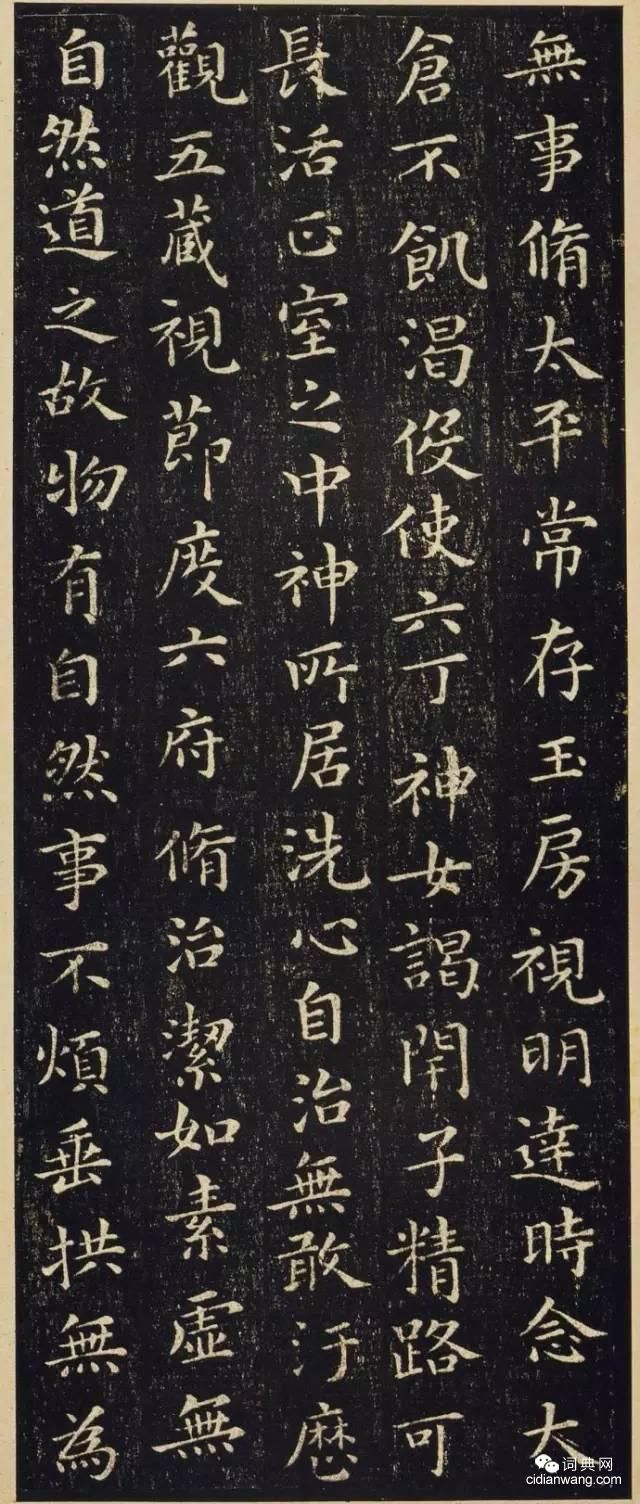 無事脩太平常存玉房視明達時念大
倉不飢渴伇使六丁神女謁閇子精路可
長活正室之中神所居洗心自治無敢汙歷
觀五藏視節度六府脩治潔如素虛無
自然道之故物有自然事不煩垂拱無為
词典网
cidianwang.com